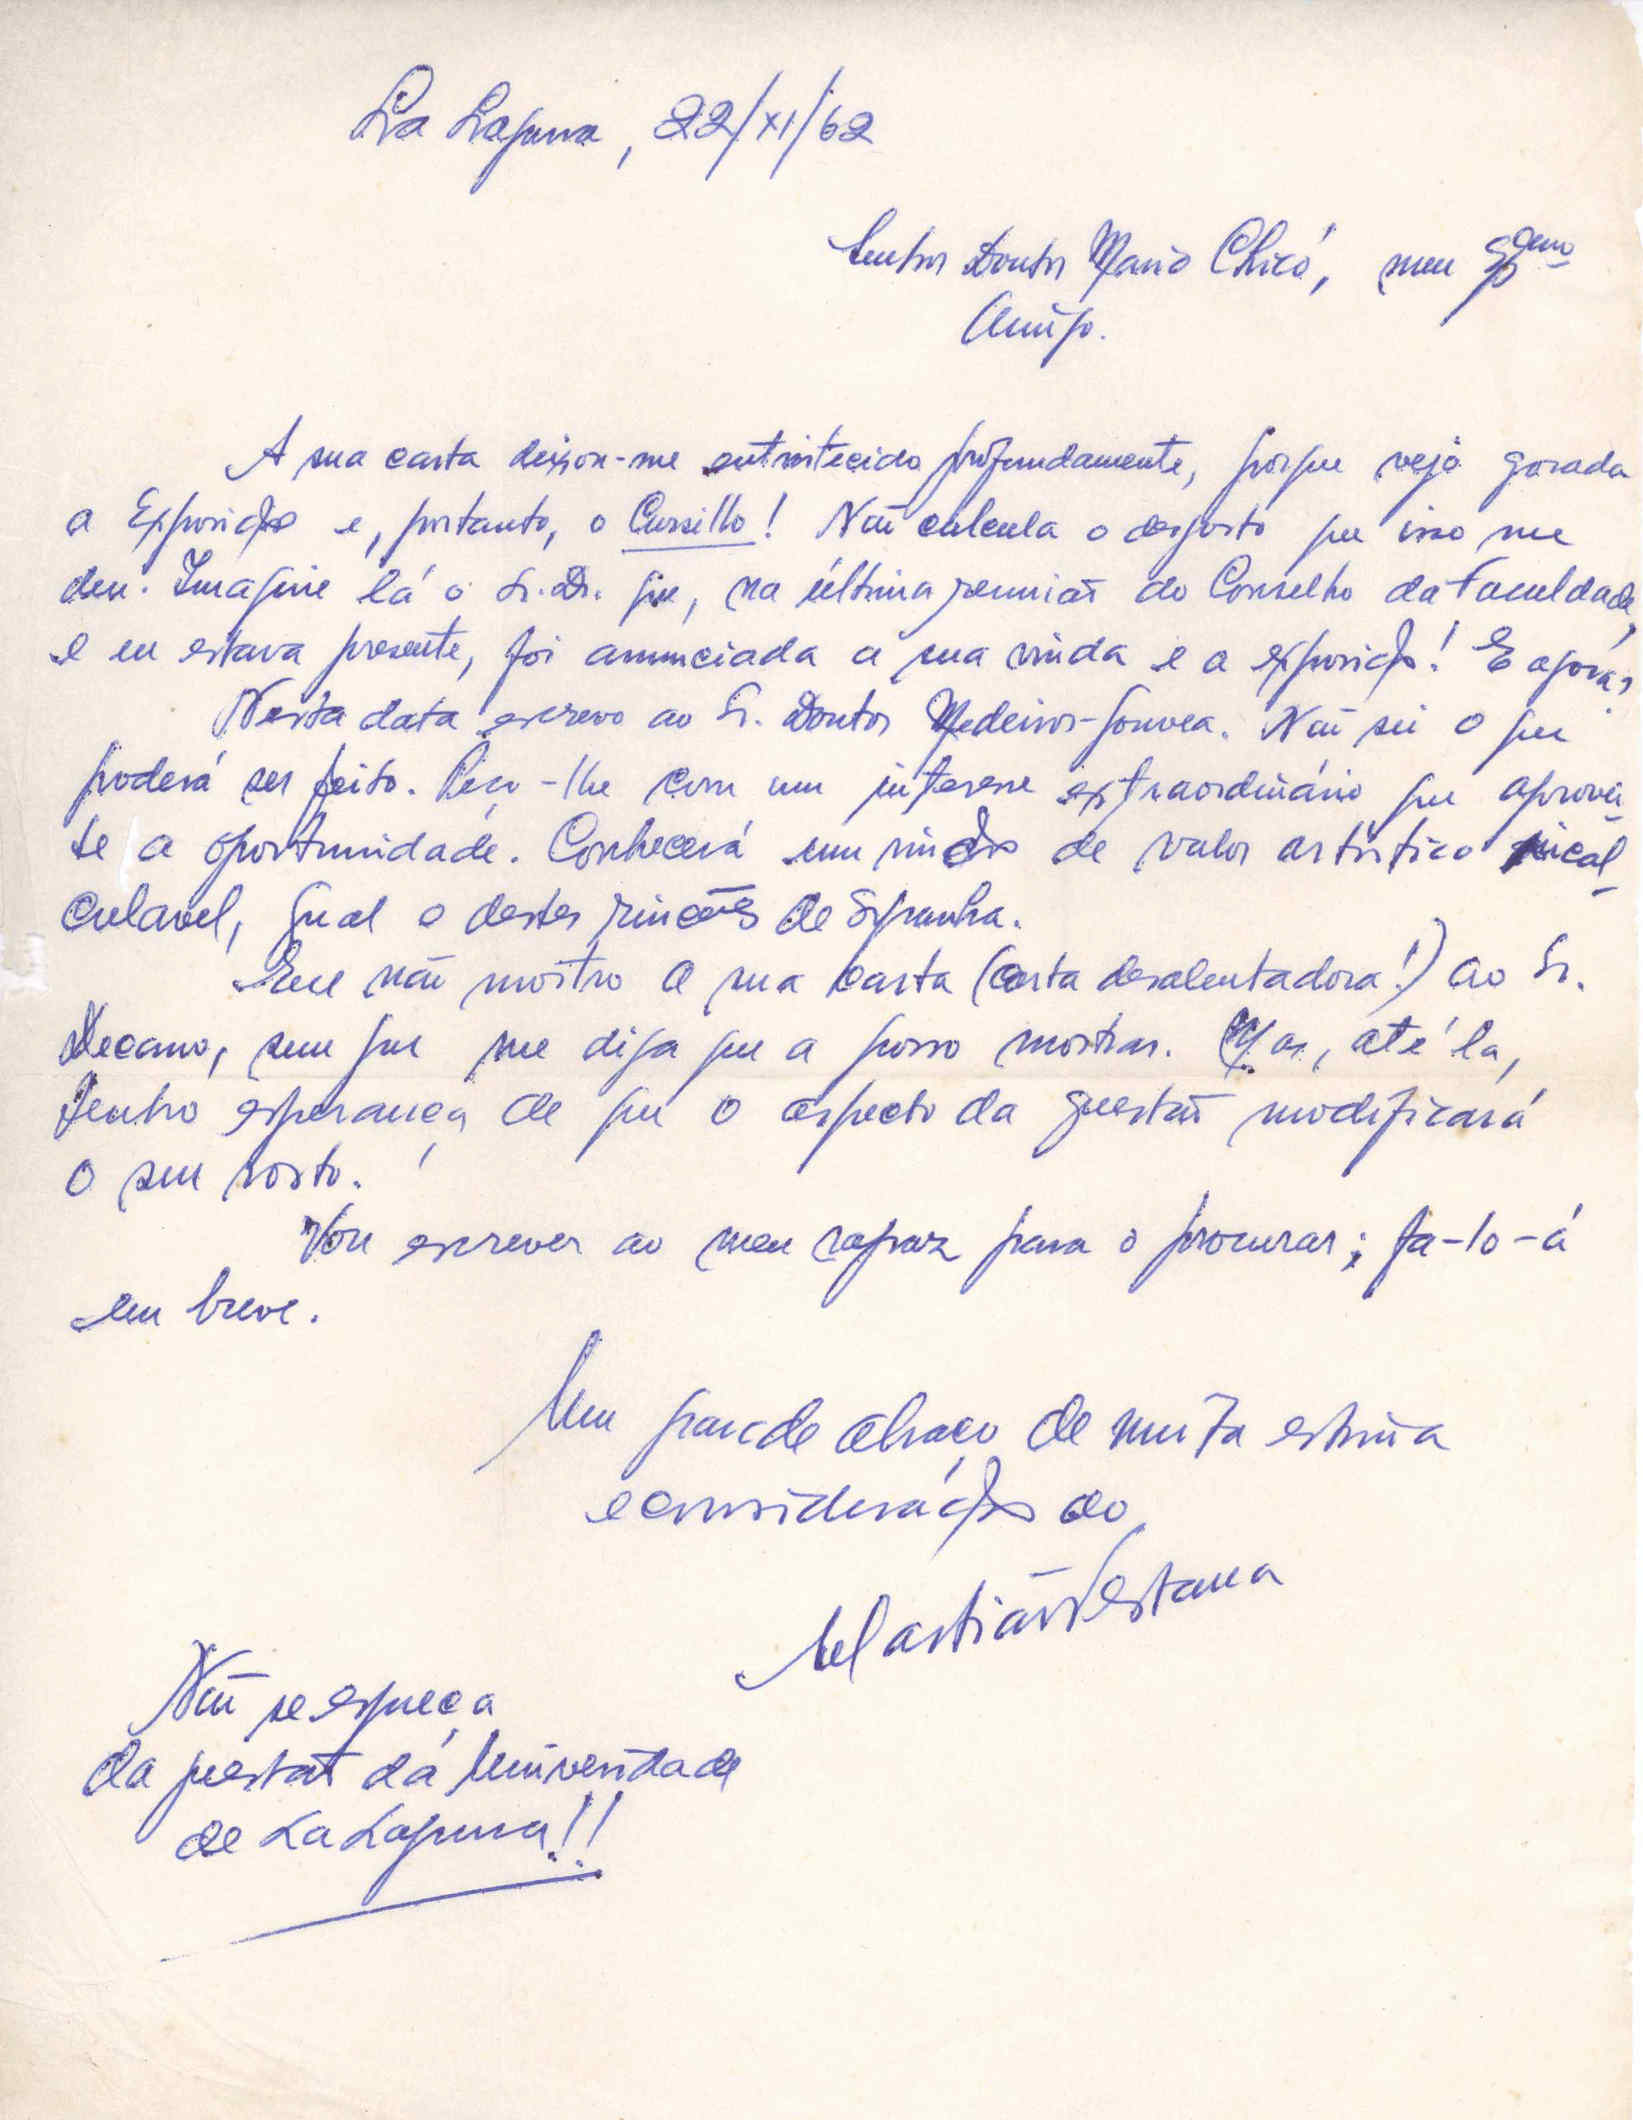 La Laguna, 22/XI/62
Senhor Doutor Mario Chicó, meu Exmo
Amigo.
A sua carta deixou-me entristecido profundamente, porque vejo gorada
a Exposição e, portanto, o Cursillo! Não calcula o desgosto que isso me
deu. Imagine lá o Sr. Dr. que, na última reunião do Conselho da Faculdade,
e eu estava presente, foi anunciada a sua vinda e a exposição! E agora?
Nesta data escrevo ao Sr. Doutor Medeiros-Gouvea. Não sei o que
poderá ser feito. Peço-lhe com um interesse extraordinário que aprovei-
te a oportunidade. Conhecerá um de valor artístico incal-
culavel, qual o destes rincões de Espanha.
Eu não mostro a sua carta (carta desalentadora!) ao Sr.
Decano, sem que me diga que a posso mostrar. Mas, até lá,
tenho esperança de que o aspecto da questão modificará
o seu rosto.
Vou escrever ao meu rapaz para o procurar; fa-lo-á
em breve.
Um grande abraço de muita estima
e consideração do
Sebastião Pestana
Não se esqueça
da questão da Universidade
de La Laguna!!